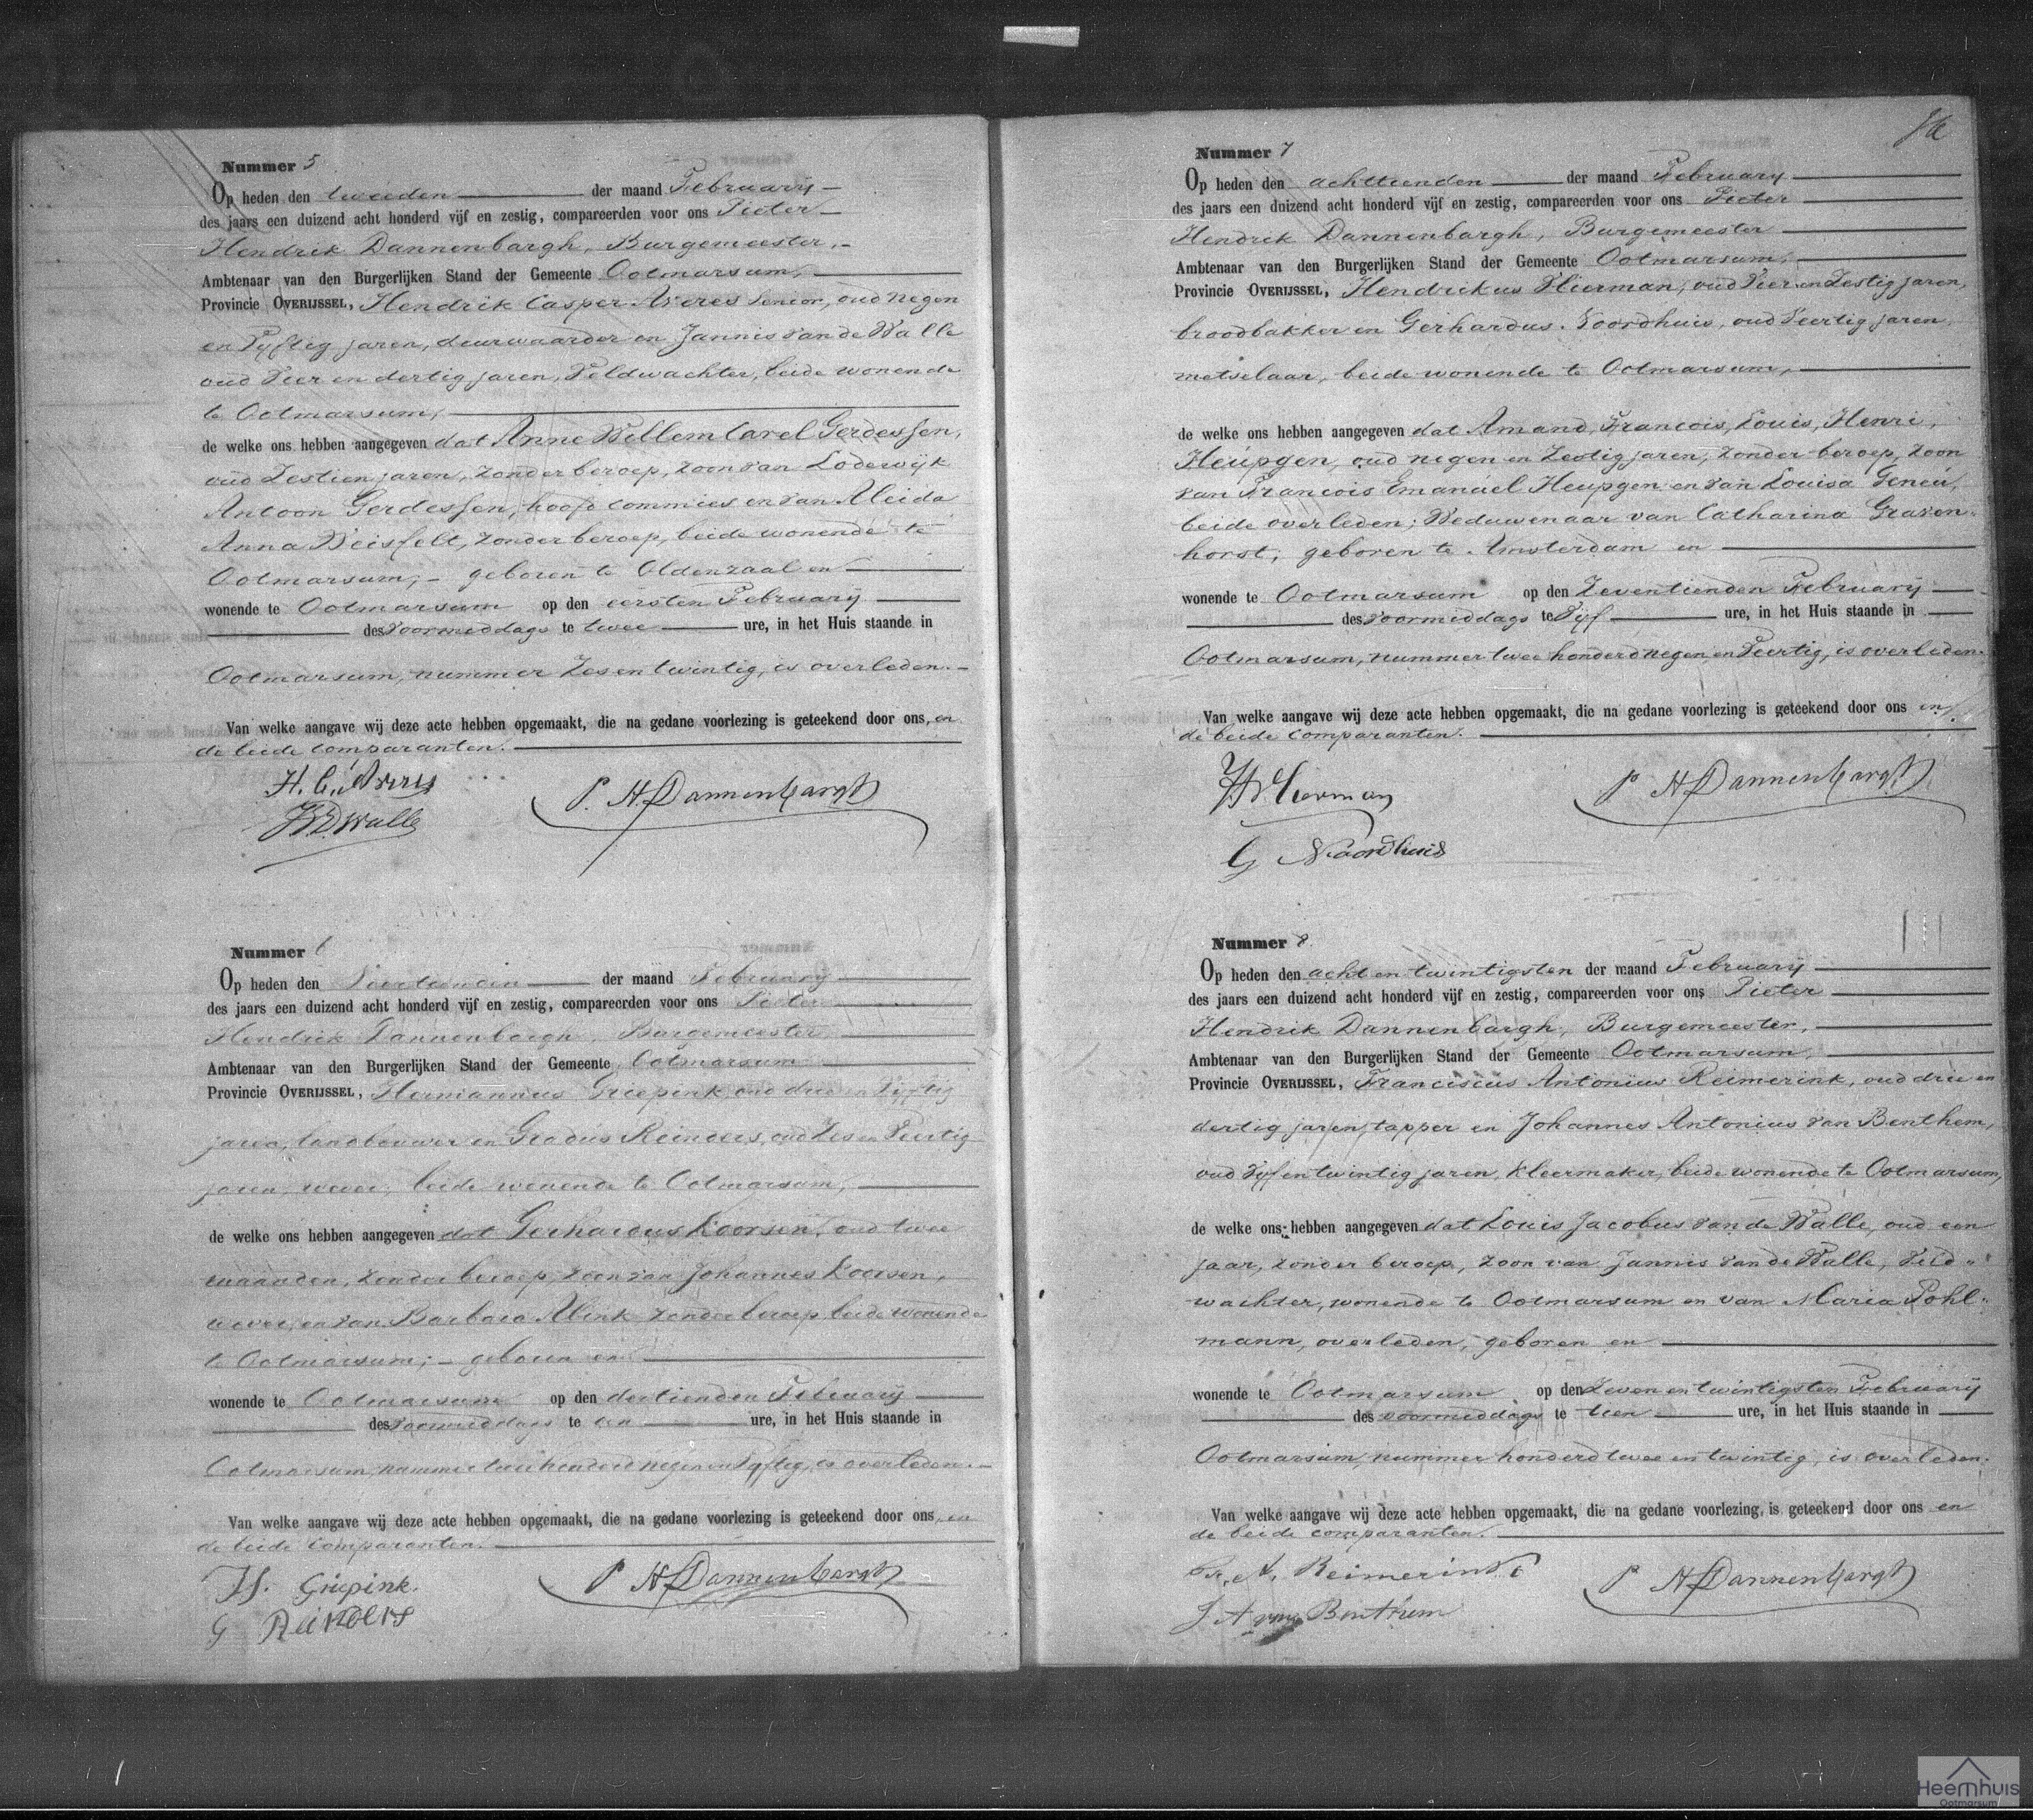 Nummer 5
Op heden den tweeden der maand February
des jaars een duizend acht honderd vijf en zestig, compareerden voor ons Pieter
Hendrik Dannenbargh, Burgemeester,
Ambtenaar van den Burgerlijken Stand der Gemeente Ootmarsum,
Provincie OVERIJSSEL, Hendrik Casper Averes Senior, oud negen
en Vyftig jaren, deurwaarder en Jannis van de Walle
oud Vier en dertig jaren, Veldwachter, beide wonende
te Ootmarsum,
de welke ons hebben aangegeven dat Anne Willem Carel Gerdessen,
oud Zestien jaren, zonder beroep, zoon van Lodewyk
Antoon Gerdessen, hoofd commies en van Aleida
Anna Weisfelt, zonder beroep, beide wonende te
Ootmarsum; geboren te Oldenzaal en
wonende te Ootmarsum op den eersten February
des Voormiddags te twee ure, in het Huis staande in
Ootmarsum, nummer Zes en twintig, is overleden.
Van welke aangave wij deze acte hebben opgemaakt, die na gedane voorlezing is geteekend door ons, en
de beide comparanten.
H. C. Averes P. H Dannenbargh
JVD Walle
Nummer 6
Op heden den Veertienden der maand February
des jaars een duizend acht honderd vijf en zestig, compareerden voor ons Pieter
Hendrik Dannenbargh, Burgemeester
Ambtenaar van den Burgerlijken Stand der Gemeente Ootmarsum
Provincie OVERIJSSEL, Hermannus Griepink, oud drie en Vyftig
jaren, landbouwer en Gradus Reinders, oud Zes en Veertig
jaren, wever, beide wonende te Ootmarsum,
de welke ons hebben aangegeven dat Gerhardus Koorsen, oud twee
maanden, zonder beroep, zoon van Johannes Koorsen,
wever, en van Barbara Alink zonder beroep beide wonende
te Ootmarsum; geboren en
wonende te Ootmarsum op den dertienden February
des Voormiddags te ure, in het Huis staande in
Ootmarsum, nummer twee honderd negen en Vyftig, is overleden.
Van welke aangave wij deze acte hebben opgemaakt, die na gedane voorlezing is geteekend door ons, en
de beide comparanten.
H. Griepink. P H Dannenbargh
G Reinders
Nummer 7
Op heden den achttienden der maand February
des jaars een duizend acht honderd vijf en zestig, compareerden voor ons Pieter
Hendrik Dannenbargh, Burgemeester
Ambtenaar van den Burgerlijken Stand der Gemeente Ootmarsum,
Provincie OVERIJSSEL, Hendrikus Hierman, oud Vier en Zestig jaren,
broodbakker en Gerhardus Noordhuis, oud Veertig jaren
metselaar, beide wonende te Ootmarsum,
de welke ons hebben aangegeven dat Amand, Francois, Louis, Henri,
Heupgen, oud negen en Zestig jaren, zonder beroep, zoon
van Francois Emanuel Heupgen en van Louisa Geneu,
beide overleden; Weduwenaar van Catharina Graven-
horst; geboren te Amsterdam en
wonende te Ootmarsum op den Zeventienden February
des Voormiddags te Vyf ure, in het Huis staande in
Ootmarsum, nummer twee honderd negen en Veertig, is overleden.
Van welke aangave wij deze acte hebben opgemaakt, die na gedane voorlezing is geteekend door ons en
de beide comparanten.
H Hierman P H Dannenbargh
G Noordhuis
Nummer 8
Op heden den acht en twintigsten der maand February
des jaars een duizend acht honderd vijf en zestig, compareerden voor ons Pieter
Hendrik Dannenbargh, Burgemeester,
Ambtenaar van den Burgerlijken Stand der Gemeente Ootmarsum,
Provincie OVERIJSSEL, Franciscus Antonius Reimerink, oud drie en
dertig jaren, tapper en Johannes Antonius van Benthem,
oud Vyf en twintig jaren, kleermaker, beide wonende te Ootmarsum,
de welke ons hebben aangegeven dat Louis Jacobus van de Walle, oud een
jaar, zonder beroep, zoon van Jannis van de Walle, Veld-
wachter, wonende te Ootmarsum en van Maria Pohl-
mann, overleden; geboren en
wonende te Ootmarsum op den Zeven en twintigsten February
des voormiddags te tien ure, in het Huis staande in
Ootmarsum, nummer honderd twee en twintig, is overleden.
Van welke aangave wij deze acte hebben opgemaakt, die na gedane voorlezing, is geteekend door ons en
de beide comparanten.
Fr. A. Reimerink P H Dannenbargh
J A van Benthem
Heemhuis
Ootmarsum